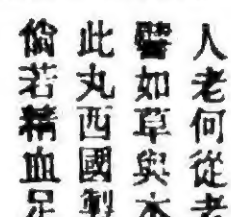 人老何從老
譬如草與木
此丸西國製
倘若精血足